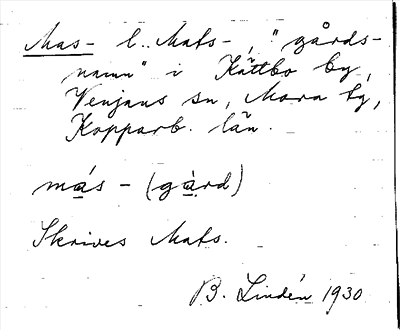 Mas- l. Mats-, "gårds-
namn" i Kättbo by,
Venjans sn, Mora tg,
Kopparb. län.
más - (gård)
Skrives Mats.
B. Lindén 1930